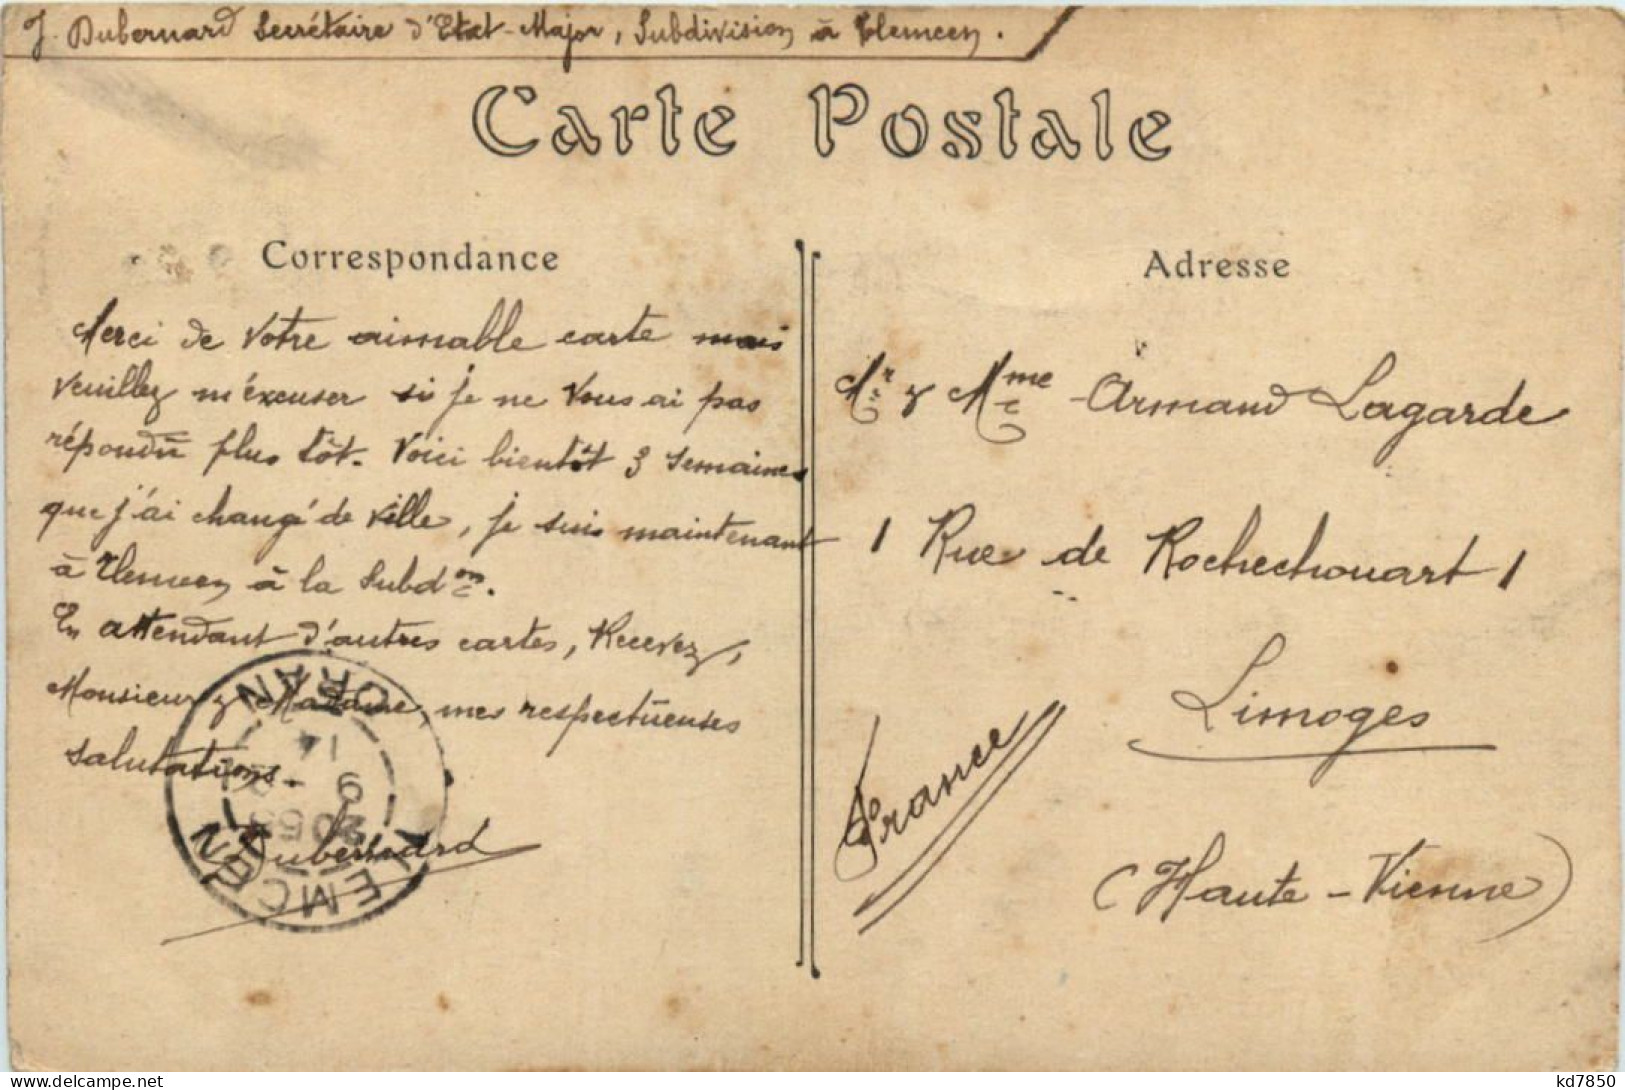 J. Dubernard Secrétaire d'Etat-Major, Subdivision à Tlemcen.
Carte Postale
Correspondance
Merci de Votre aimable carte mais
Veuillez m'éxcuser si je ne Vous ai pas
répondu plus tôt. Voici bientôt 3 semaines
que j'ai changé de Ville, je suis maintenant
à Tlemcen à la Subdon.
En attendant d'autres cartes, Recevez,
Monsieur & Madame, mes respectueuses
salutations.
Dubernard
TLEMCEN
ORAN
Adresse
Mr & Mme Armand Lagarde
1 Rue de Rochechouart 1
Limoges
France
(Haute-Vienne)
kd7850